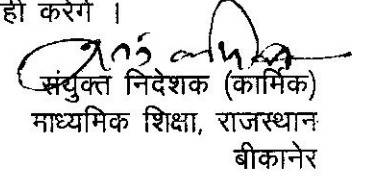 ही करेगें ।
संयुक्त निदेशक (कार्मिक)
माध्यमिक शिक्षा, राजस्थान
बीकानेर